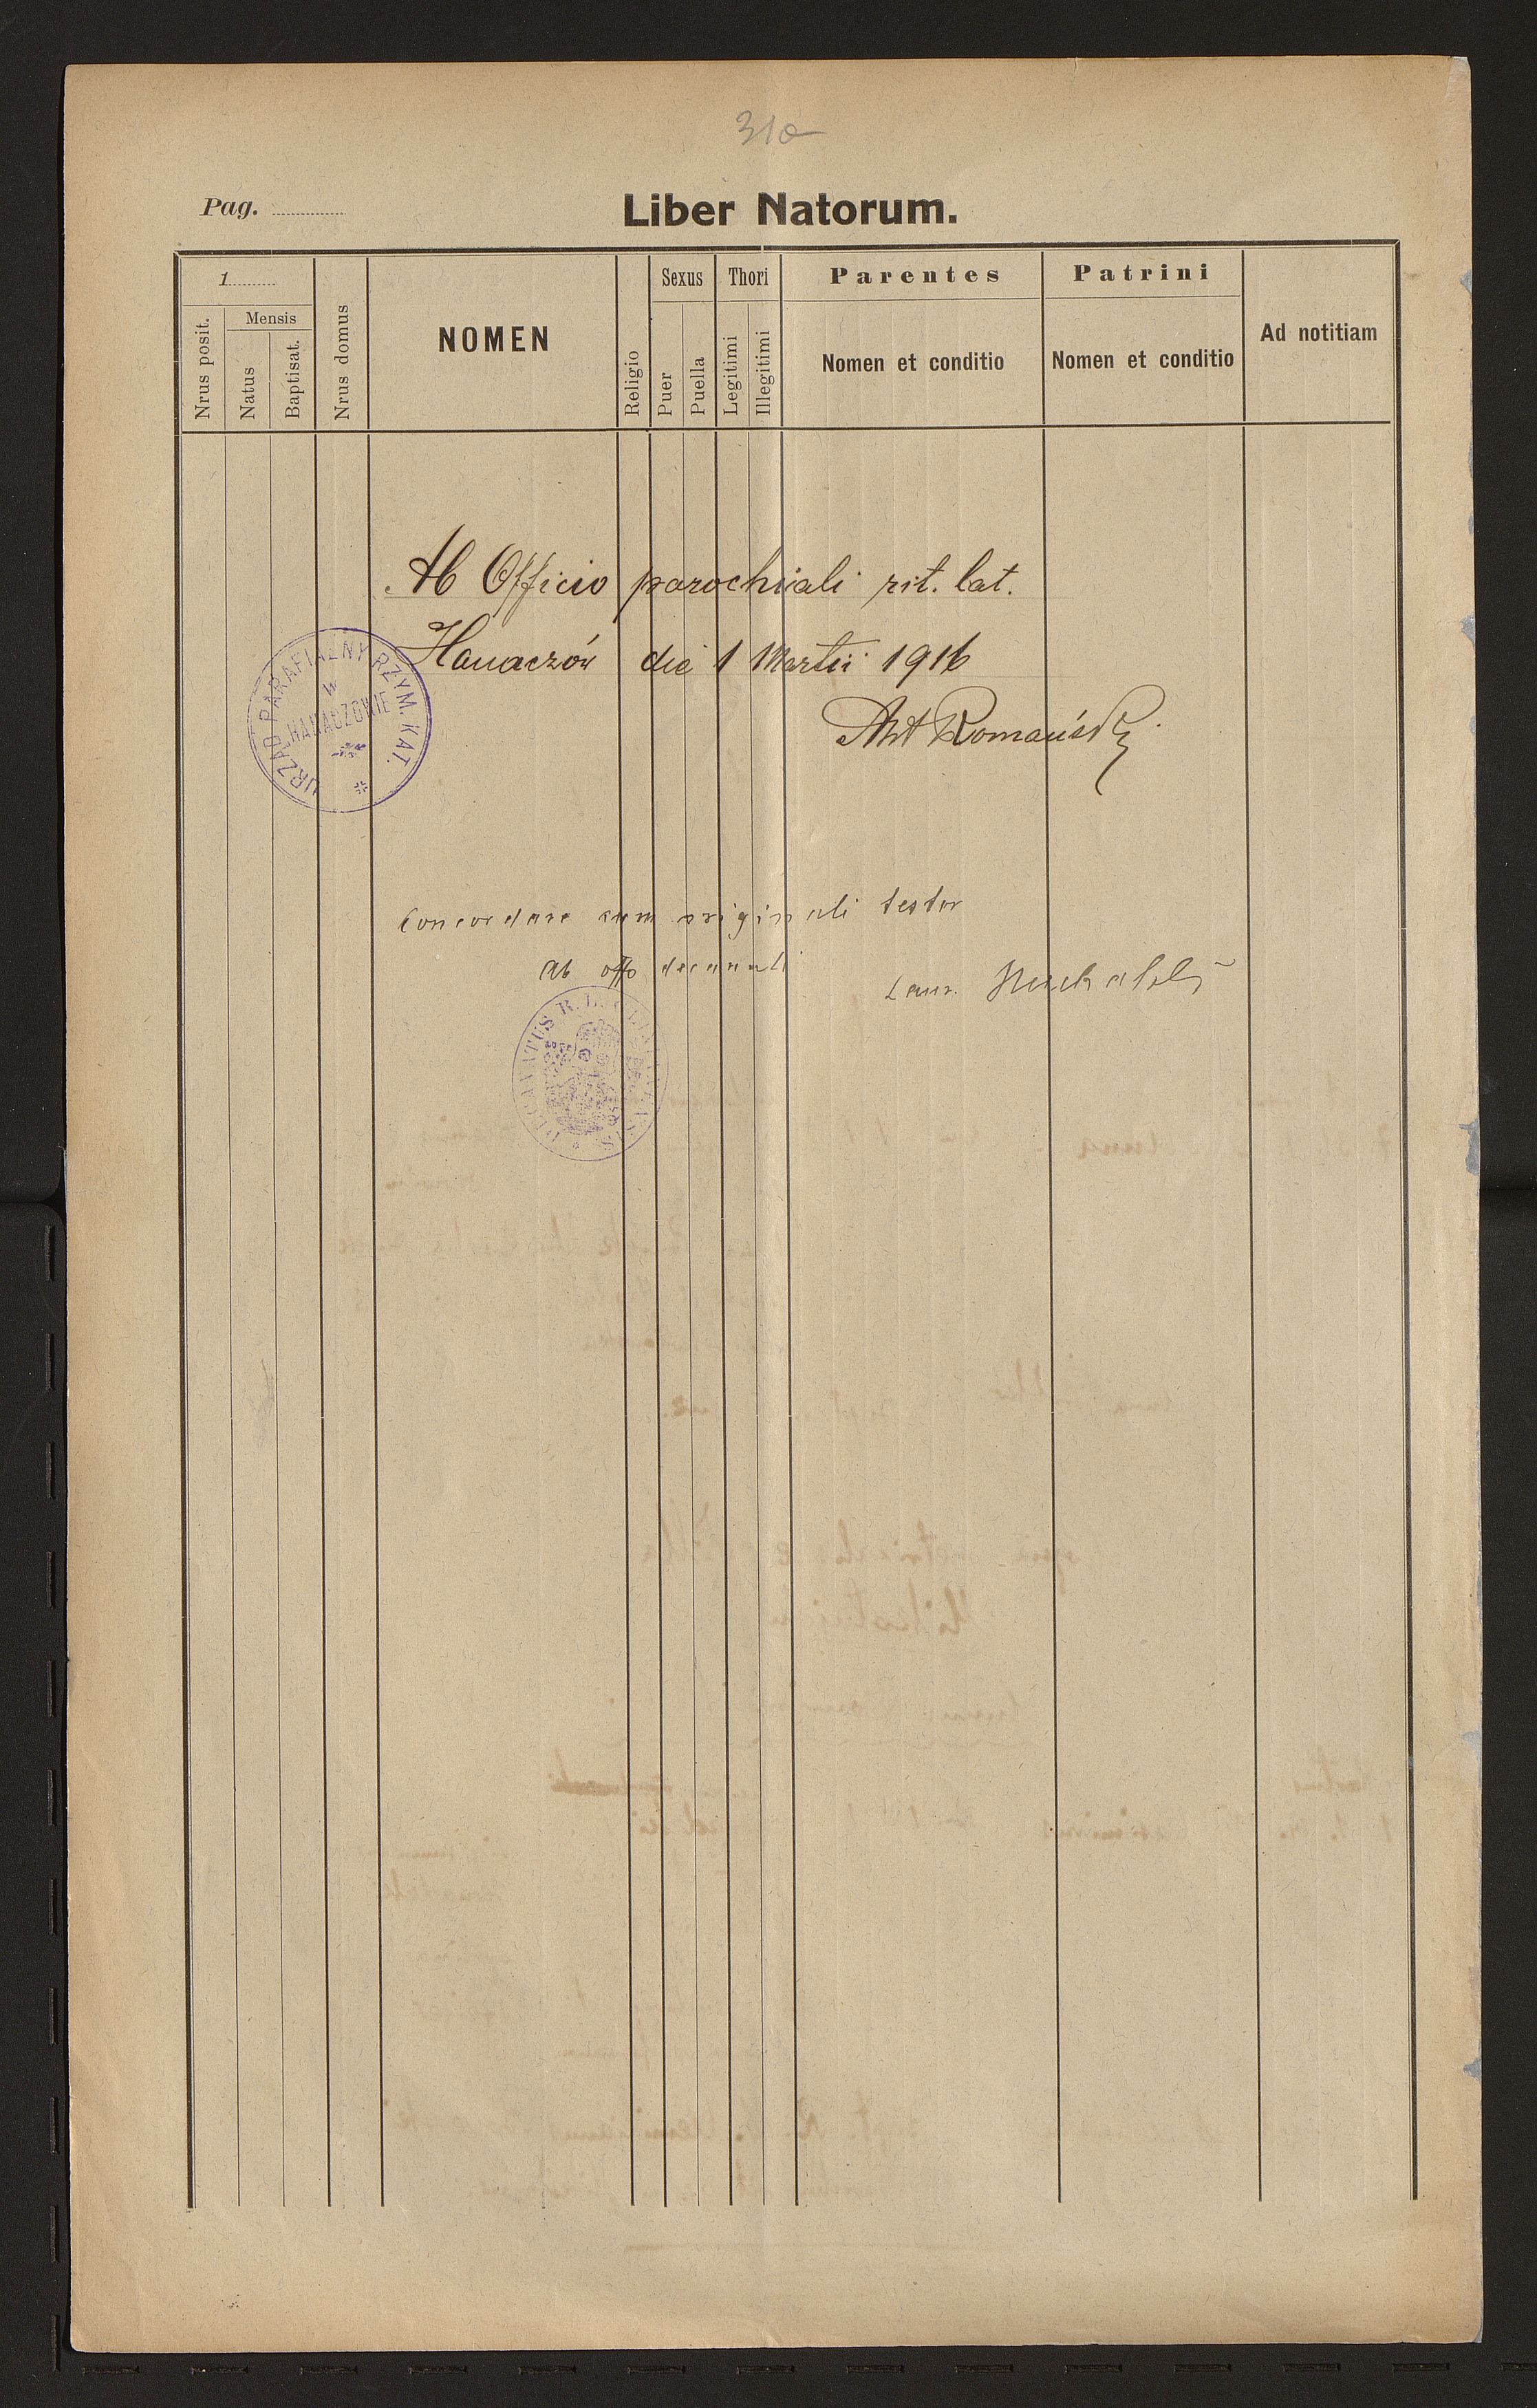 310
Pag.
Liber Natorum.
1
Sexus
Thori
Parentes
Patrini
Nrus posit.
Mensis
Natus
Baptisat.
Nrus domus
NOMEN
Religio
Puer
Puella
Legitimi
Illegitimi
Nomen et conditio
Nomen et conditio
Ad notitiam
Ab Officio parochiali rit. lat.
Hanaczów die 1 Martii 1916
Ant Romański
URZĄD PARAFIALNY RZYM. KAT.
w
HANACZOWIE
Concordare cum originali testor
ab offo decanali
Laur.
DECANATUS R. L.